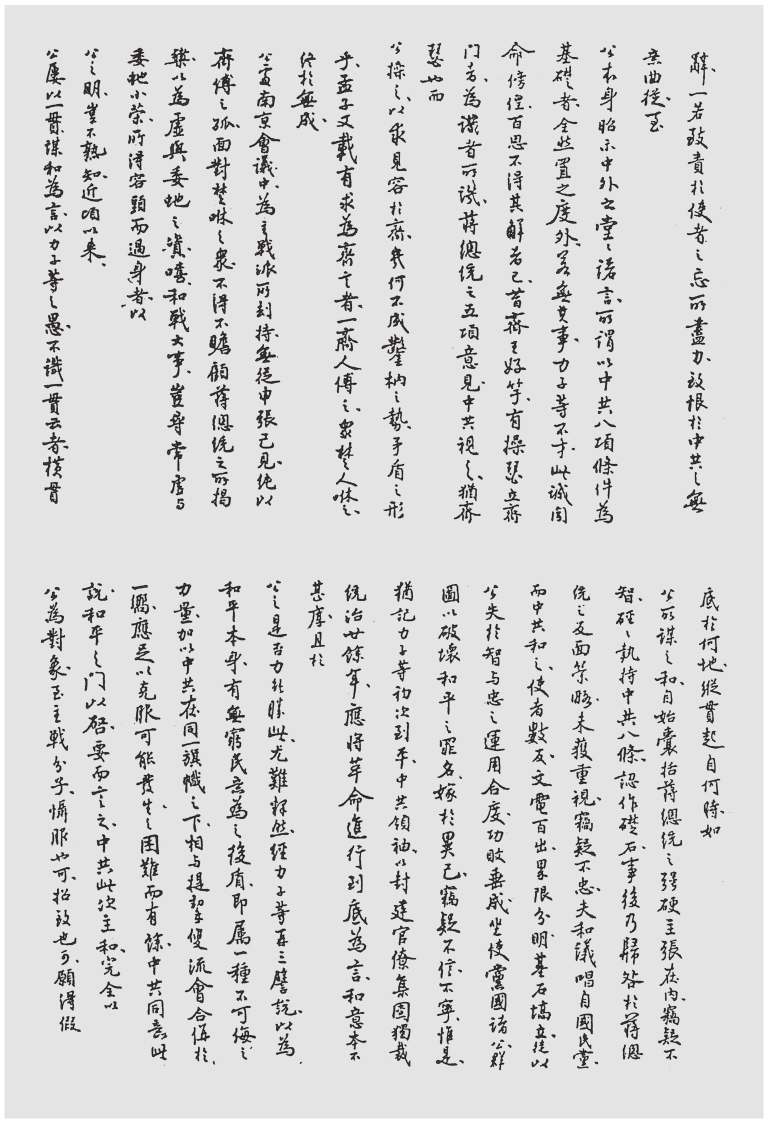 辭、一若致責於使者之忘所盡力、致恨於中共之無
意曲從、至
公本身昭示中外之堂堂諾言、所謂以中共八項條件為
基礎者、全然置之度外、若無其事、力子等不才、此誠
命傍徨百思不得其解者已、昔齊王好竽、有操瑟立齊
門者、為識者所譏、蔣總統之五項意見、中共視之、猶齊
瑟也、而
公操之、以求見容於齊、幾何不成鑿枘之勢、矛盾之形
乎、孟子又載有求為齊言者、一齊人傅之、眾楚人咻之、
終於無成、
公當南京會議中、為主戰派所劫持、無從申張己見、純以
齊傅之孤、面對楚咻之眾、不得不瞻顧蔣總統之所揭
櫫、以為虛與委蛇之資、嘻、和戰大事、豈尋常虛與
委蛇小策、所得容頭而過身者、以
公之明、豈不熟知、近頃以來、
公屢以一貫謀和為言、以力子等之愚、不識一貫云者、橫貫
底於何地、縱貫起自何時、如
公所謀之和、自始囊括蔣總統之強硬主張在內、竊疑不
智、硜硜執持中共八條、認作礎石、事後乃歸咎於蔣總
統之反面策略、未獲重視、竊疑不忠、夫和議唱自國民黨、
而中共和之、使者數反、文電百出、界限分明、墓石塙立、徒以
公失於智與忠之運用合度、功敗垂成、坐使黨國諸公、群
圖以破壞和平之罪名、嫁於異己、竊疑不信、不寧惟是、
猶記力子等初次到平、中共領袖、以封建官僚集團獨裁
統治廿餘年、應將革命進行到底為言、和意本不
甚摩、且於
公之是否力能勝此、尤難釋然、經力子等再三譬說、以為
和平本身、有無窮民意為之後盾、即屬一種不可侮之
力量、加以中共在同一旗幟之下、相與提挈、雙流會合、併於
一嚮、應足以克服可能發生之困難而有餘、中共同意此
說、和平之門以啓、要而言之、中共此次主和、完全以
公為對象、至主戰分子、懾服也可、招致也可、願得假